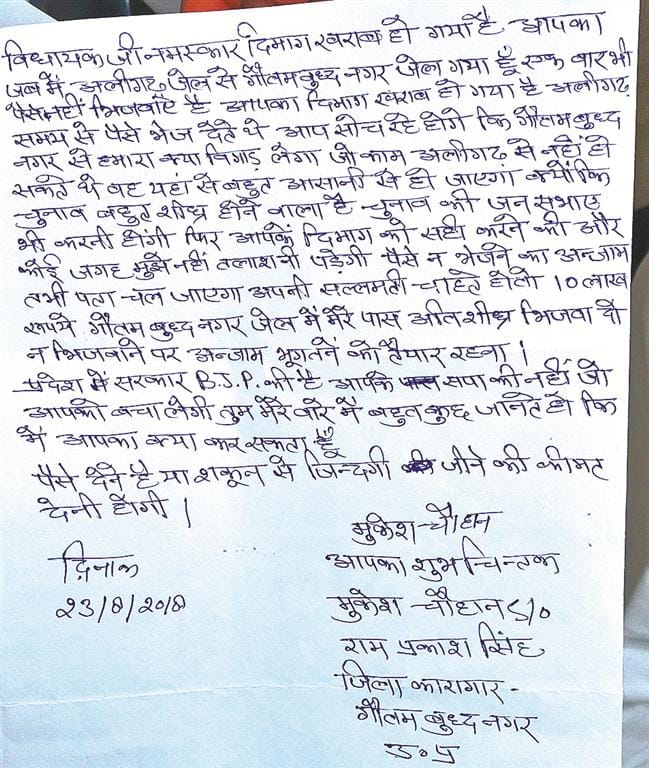 विधायक जी नमस्कार दिमाग खराब हो गया है आपका
जब में अलीगढ़ जेल से गौतम बुध्द नगर जेल गया हूँ एक बार भी
पैसे नहीं भिजवाए है आपका दिमाग खराब हो गया है अलीगढ़
समय से पैसे भेज देते थे आप सोच रहे होगे कि गौतम बुध्द
नगर से हमारा क्या बिगाड़ लेगा जो काम अलीगढ़ से नहीं हो
सकते थे वह यहां से बहुत आसानी से हो जाएगा क्योंकि
चुनाव बहुत शीघ्र होने वाला है चुनाव की जन सभाए
भी करनी होंगी फिर आपके दिमाग को सही करने की और
कोई जगह मुझे नहीं तलाशनी पड़ेगी पैसे न भेजने का अन्जाम
तभी पता चल जाएगा अपनी सल्लमती चाहते हो तो 10 लाख
रूपये गौतम बुध्द नगर जेल में मेरे पास अतिशीघ्र भिजवा दो
न भिजवाने पर अन्जाम भूगतने को तैयार रहना।
प्रदेश में सरकार B.J.P. की है आपके सपा की नहीं जो
आपको बचा लेगी तुम मेरे बारे में बहुत कुछ जानते हो कि
मैं आपका क्या कर सकता हूँ
पैसे देने है या शकून से जिन्दगी जीने की कीमत
देनी होगी।
मुकेश चौहान
दिनाक
आपका शुभ चिन्तक
23/8/2018
मुकेश चौहान S/o
राम प्रकाश सिंह
जिला कारागार -
गौतम बुध्द नगर
उ०प्र